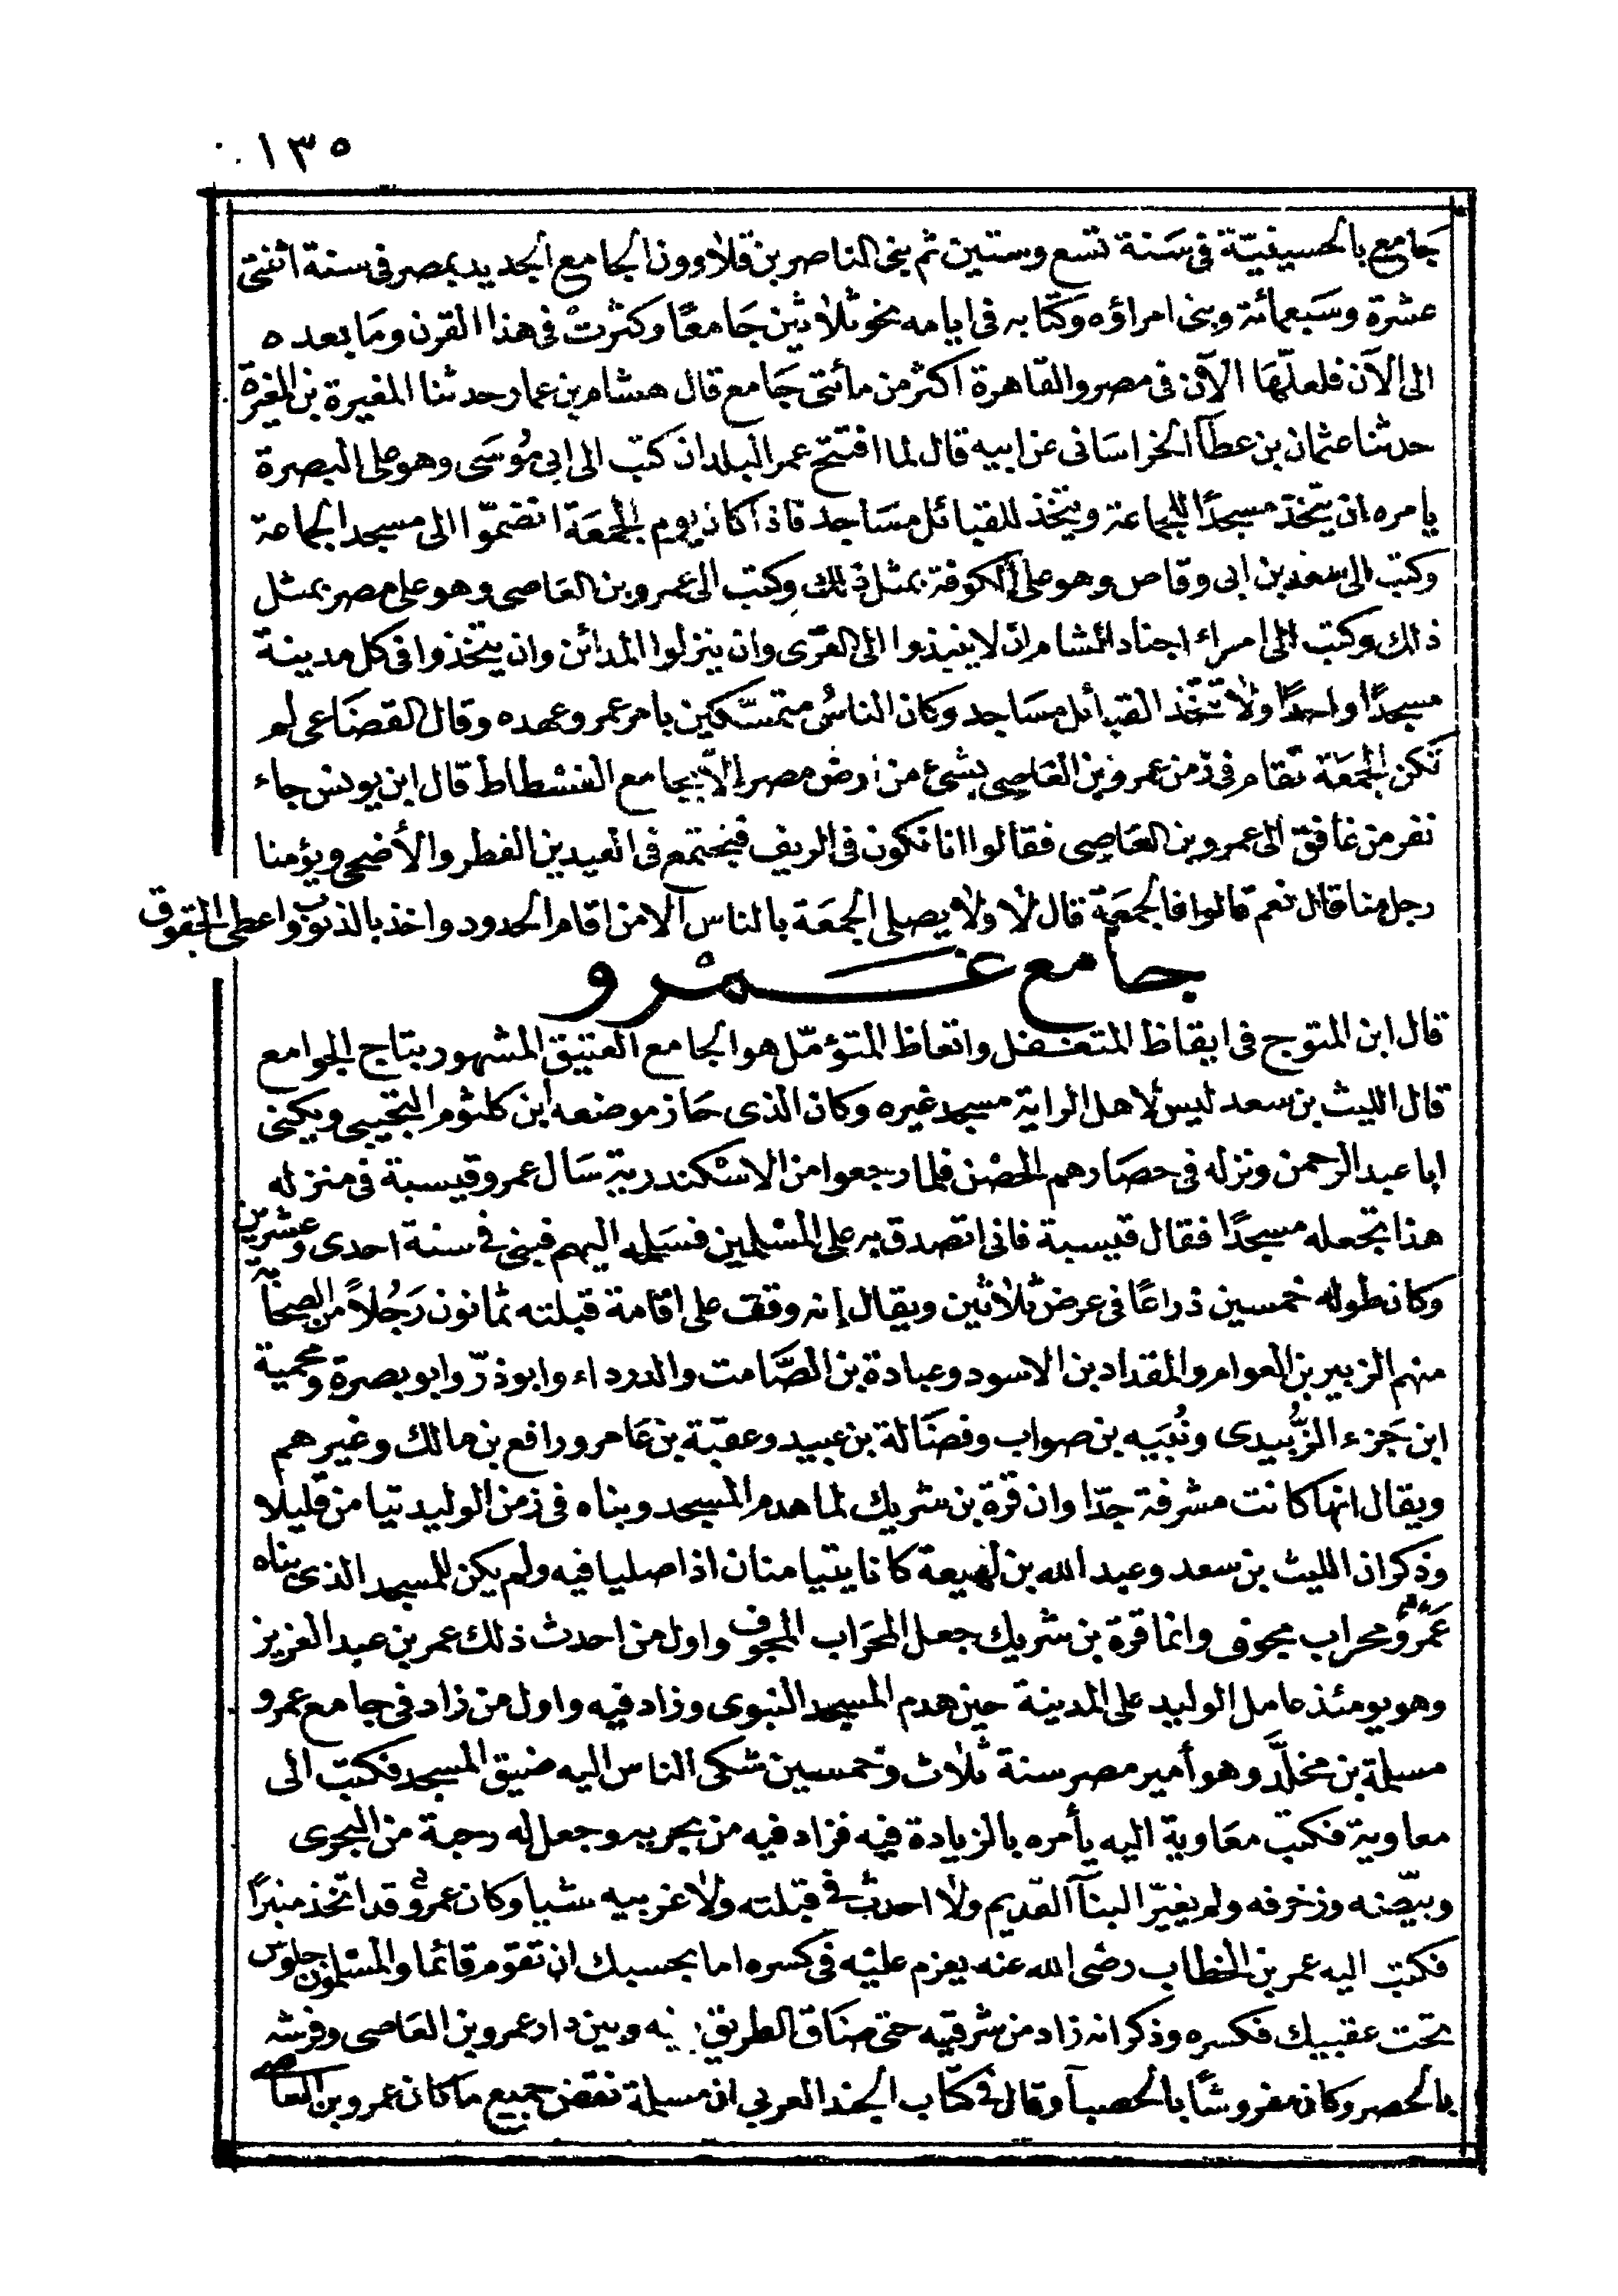 ١٣٥
جامع بالحسينيّة في سَنة تسع وستين ثم بنى الناصر بن قلاوون الجامع الجديد بمصر في سنة اثنتى
عشرة وسَبعمائة وبنى امراؤه وكتّابه في ايامه نحو ثلاثين جَامعًا وكثرتْ في هذا القرن ومَا بعده
الى الآن فلعلّها الآن في مصر والقاهرة اكثر من مائتى جَامع قال هشام بن عمار حدثنا المغيرة بن المغيرة
حدثنا عثمان بن عطآ الخراسَانى عن ابيه قال لما افتتح عمر البلدان كتب الى ابى مُوسَى وهو على البصرة
يامره ان يتّخذ مسجدًا للجماعة ويتّخذ للقبائل مسَاجد فاذا كان يوم الجمَعَة انضمّوا الى مسجد الجماعة
وكتب الى سعد بن ابى وقاص وهو على الكوفة بمثل ذلك وكتب الى عمرو بن العَاصى وهو على مصر بمثل
ذلك وكتب الى امراء اجناد الشام ان لا ينبذوا الى القرَى وان ينزلوا المدائن وان يتّخذوا في كل مدينة
مسجدًا واحدًا ولا تتّخذ القبائل مسَاجد وكان الناسُ متمسّكين بامر عمر وعهده وقال القضَاعى لم
تكن الجمَعَة تقام في زمن عمرو بن العَاصِى بشئ من ارض مصر إلاّ بجامع الفسْطاط قال ابن يونس جاء
نفر من غافق الى عمرو بن العَاصِى فقالوا انا نكون في الريف فنجتمع في العيدين الفطر والأضحى ويؤمنا
رجل منا قال نعم قالوا فالجمعَة قال لا ولا يصلى الجمعَة بالناس الا من اقام الحدود واخذ بالذنوب واعطى الحقوق
جامع عَمْرو
قال ابن المتوج في ايقاظ المتغـفل واتعاظ المتؤمّل هو الجامع العتيق المشهور بتاج الجوامع
قال الليث بن سعد ليس لاهل الراية مسجد غيره وكان الذى حَاز موضعه ابن كلثوم التجيبى ويكنى
ابا عبد الرحمن ونزله في حصَارهم الحصْن فلما رجعوا من الاسْكندرية سَال عمرو قيسبة في منزله
هذا بجعله مسجدًا فقال قيسبة فانى اتصدق به على المسْلمين فسَلمه اليهم فبنى في سنة احدى وعشرين
وكان طوله خمسين ذراعًا في عرض ثلاثين ويقال إنه وقف على اقامة قبلته ثمانون رَجُلاً من الصحابة
منهم الزبير بن العوام والمقداد بن الاسود وعبادة بن الصَّامت والدرداء وابوذرّ وابو بصرة ومحمية
ابن جَزء الزُّبيدى ونُبَيه بن صواب وفضَالة بن عبيد وعقبة بن عَامر ورافع بن مالك وغيرهم
ويقال انها كانت مشرفة جدّا وان قرة بن شريك لما هدم المسجد وبناه في زمن الوليد تيامن قليلا
وذكر ان الليث بن سعد وعبد الله بن لهيعة كانا يتيامنان اذا صليا فيه ولم يكن للمسجد الذى بناه
عَمرو محراب مجوف وانما قرة بن شريك جعل المحرَاب المجوف واول من احدث ذلك عمر بن عبد العزيز
وهو يومئذ عامل الوليد على المدينة حين هدم المسجد النبوى وزاد فيه واول من زاد في جامع عمرو
مسلمة بن مخلَّد وهو أمير مصر سنة ثلاث وخمسين شكى الناس اليه ضيق المسجد فكتب الى
معاوية فكتب معَاوية اليه يأمره بالزيادة فيه فزاد فيه من بحريه وجعل له رحبة من البحرى
وبيّضه وزخرفه ولم يغيّر البنآ القديم ولا احدث في قبلته ولا غربيه شيا وكان عمرو قد اتخذ منبرًا
فكتب اليه عمر بن الخطاب رضى الله عنه يعزم عليْه في كسره اما بحسبك ان تقوم قائما والمسْلمون جلوس
تحت عقبيك فكسره وذكر انه زاد من شرقيه حتى ضَاق الطريق بينه وبين دار عمرو بن العَاصى وفرشه
بالحصر وكان مفروشًا بالحصبآ وقال في كتاب الجند العربى ان مسلمة نقض جميع ما كان عمرو بن العاصى